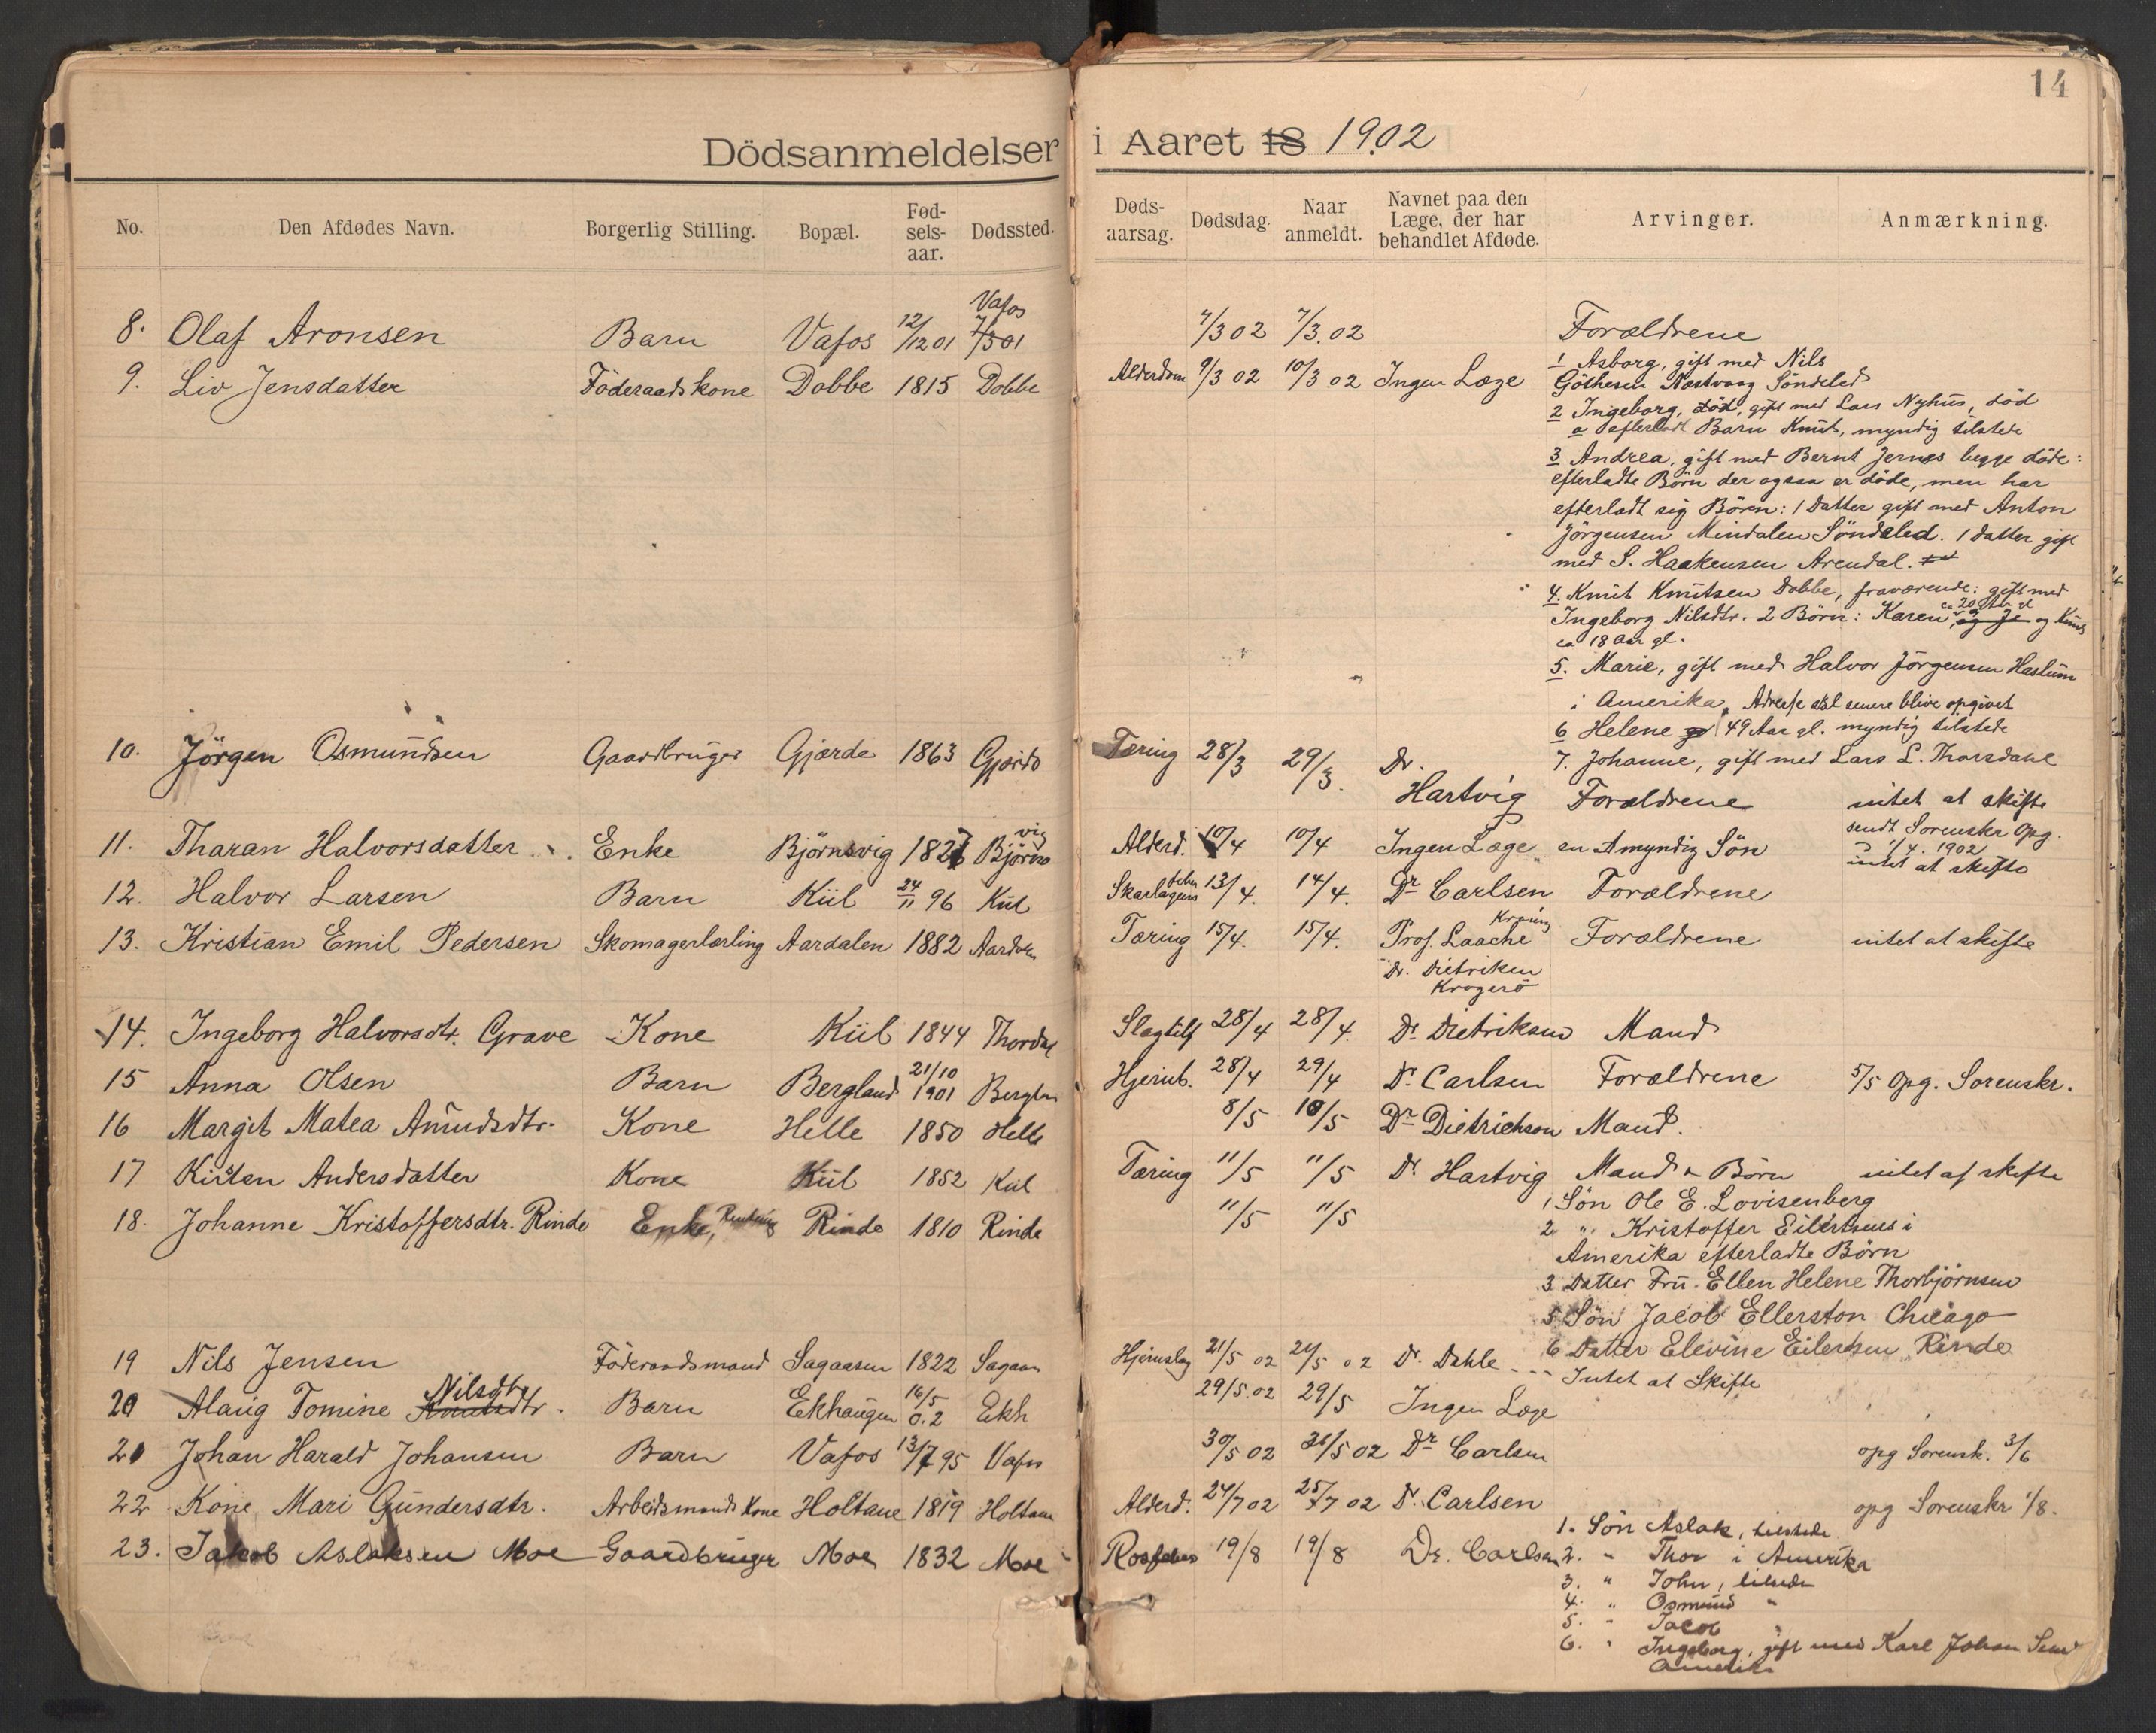 14
Dödsanmeldelser i Aaret 18 1902
No. Den Afdødes Navn. Borgerlig Stilling. Bopæl. Fød-sels-aar. Dødssted. Døds-aarsag. Dødsdag. Naar anmeldt. Navnet paa den Læge, der har behandlet Afdøde. Arvinger. Anmærkning.
8. Olaf Aronsen Barn Vafos 12/12 01 Vafos 7/3 02 7/3.02 Forældrene
9. Liv Jensdatter Föderaadskone Dobbe 1815 Dobbe Alderdom 9/3 02 10/3 02 Ingen Læge
1 Asborg, gift med Nils
Söndeled
2 Ingeborg, död, gift med Lars Nyhus, död
a efterladt Barn Knut, myndig tilstede
3 Andrea, gift med Bernt Jernes begge döde:
efterladte Börn der ogsaa er döde, men har
efterladt sig Börn: 1 Datter gift med Anton
Jörgensen Mindalen Söndeled. 1 datter gift
med S. Haakensen Arendal.
4. Knut Knutsen Dobbe, fraværende: gift med
Ingeborg Nilsdtr. 2 Börn: Karen ca 20 Aar gl og Knut
ca 18 aar gl.
5. Marie, gift med Halvor Jörgensen Haslum
i Amerika, Adresse skal senere blive opgivet
6 Helene 49 Aar gl. myndig tilstede
7. Johanne, gift med Lars L. Thorsdal
10. Jörgen Osmundsen Gaardbruger Gjærde 1863 Gjærde Tæring 28/3 29/3. Dr. Hartvig Forældrene intet at skifte
sendt Sorenskr Opg.
1/4. 1902
11. Tharan Halvorsdatter Enke Björnsvig 1827 Björnsvig Alderd. 10/4 10/4 Ingen Læge en myndig Sön intet at skifte
12. Halvor Larsen Barn Kiil 24/11 96 Kiil Skarlagensfeber 13/4. 14/4. Dr Carlsen Forældrene
13. Kristian Emil Pedersen Skomagerlærling Aardalen 1882 Aardalen Tæring 15/4. 15/4. Prof. Laache Forældrene intet at skifte
Dr. Dietriksen
Kragerö
14. Ingeborg Halvorsdtr. Grave Kone Kiil 1844 Thordal Slagtilf 28/4 28/4. Dr Dietriksen Mand
15 Anna Olsen Barn Bergland 21/10 1901 Bergland Hjerneb. 28/4 29/4 Dr Carlsen Forældrene 5/5 Opg. Sorenskr.
16 Margit Matea Amundsdtr. Kone Helle 1850 Helle 8/5 10/5 Dr Dietrichson Mand.
17 Kirsten Andersdatter Kone Kiil 1852 Kiil Tæring 11/5 11/5 Dr. Hartvig Mand & Börn intet at skifte
18. Johanne Kristoffersdtr. Rinde Enke, Rinde 1810 Rinde 11/5 11/5
1 Sön Ole E. Lovisenberg
2 " Kristoffer Eilertsens i
Amerika efterladte Börn
3 Datter Fru Ellen Helene Thorbjörnsen
5 Sön Jacob Ellerston Chicago
6 Datter Elevine Eilertsen Rinde
19 Nils Jensen Föderaadsmand Sagaasen 1822 Sagaasen Hjerneslag 21/5 02 21/5 02 Dr. Dahle Intet at Skifte
20 Alaug Tomine Nilsdtr. Barn Eekhaugen 16/5 0.2 Eekh 29/5.02 29/5 Ingen Læge
21 Johan Harald Johansen Barn Vafos 13/7 95 Vafos 30/5 02 31/5 02 Dr Carlsen opg Sorensk. 3/6
22 Kone Mari Gundersdtr. Arbeidsmands Kone Holtane 1819 Holtane Alderd. 24/7 02 25/7 02 Dr. Carlsen opg Sorenskr 1/8.
23. Jakob Aslaksen Moe Gaardbruger Moe 1832 Moe Rosfeber 19/8 19/8 Dr. Carlsen
1. Sön Aslak, tilstede
2. " Thor i Amerika
3. " John, tilstede
4. " Osmund "
5. " Jacob "
6. " Ingeborg, gift med Karl Johan
Amerika